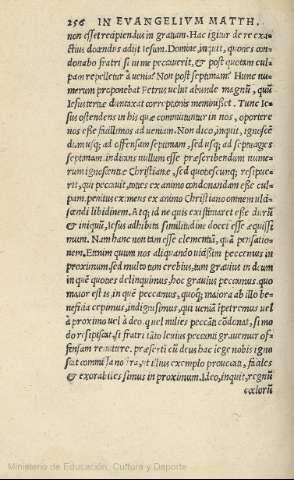 256 IN EVANGELIVM MATTH.
non esset recipiendus in gratiam. Hac igitur de re exa-
ctius docendus adijt Iesum. Domine, inquit, quoties con-
donabo fratri si in me peccauerit, & post quotam cul-
pam repelletur à uenia? Non post septimam? Hunc nu-
merum proponebat Petrus uelut abunde magnū, quū
Iesus ternæ duntaxat correptionis meminisset. Tunc Ie-
sus ostendens in his quæ committuntur in nos, oportere
nos esse facillimos ad ueniam. Non dico, inquit, ignosce-
dum usq; ad offensam septimam, sed usq; ad septuagies
septimam. indicans nullum esse præscribendum nume-
rum ignoscentiæ Christianæ, sed quotiescunq; resipue-
rit, qui peccauit, toties ex animo condonandam esse cul-
pam. penitus ex mens ex animo Christiano omnem ulci-
scendi libidinem. Atq; id ne quis existimaret esse durū
& iniquū, Iesus adhibita similitudine docet esse æquissi-
mum. Nam hanc non tam esse clementiā, quā pensatio-
nem, Etenim quum nos aliquando uicissim peccemus in
proximum, sed multo tum crebius, tum grauius in deum
in quē quoties delinquimus, hoc grauius peccamus, quo
maior est is, in quē peccamus, quoq; maiora ab illo be-
neficia cepimus, indignissimus, qui ueniā speremus uel
à proximo uel à deo, qui el milies peccātī cōdonat, si mo
do resipiscat, si fratri tāto leuius peccanti grauemur of-
fensam remittere. præsertim cū deus hac lege nobis igno
scat commissa nostra, ut illius exemplo prouocati, faciles
& exorabiles simus in proximum. Ideo, inquit, regnū
cœlorū
Ministerio de Educación, Cultura y Deporte